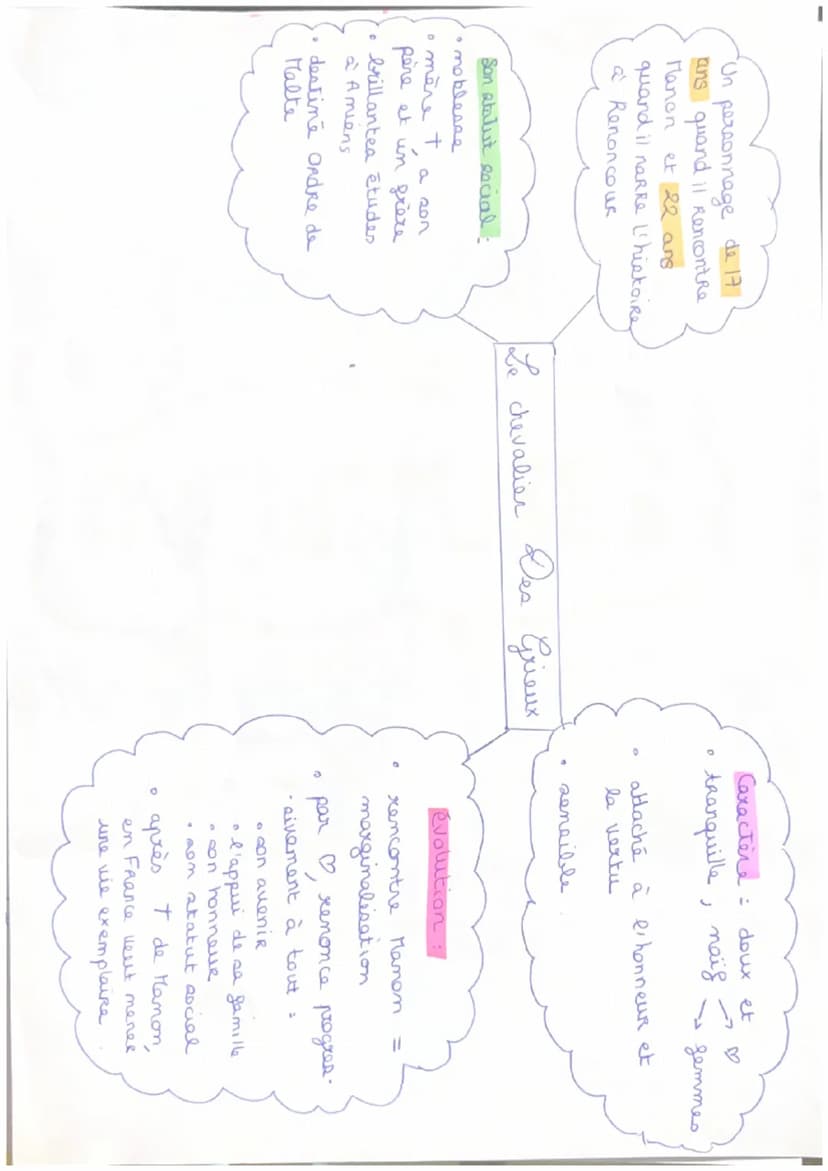 Un personnage de 17
ans quand il rencontre
Manon et 22 ans
quand il narre l'histoire
à Renoncour
Son statut social :
• noblesse
• mère †, a son
père et un frère
• brillantes études
à Amiens
• destiné Ordre de
Malte
Le chevalier Des Grieux
Caractère : doux et
• tranquille, naïf → ♡
→ femmes
• attaché à l'honneur et
la vertu
• sensible
évolution :
• rencontre Manon =
marginalisation
• par ♡, renonce progres-
sivement à tout :
• son avenir
• l'appui de sa famille
• son honneur
• son statut social
• après † de Manon,
en France veut mener
une vie exemplaire.